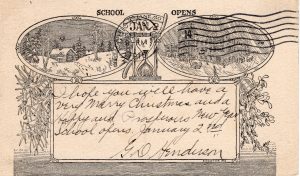 SCHOOL OPENS
JAN 2
I hope you will have a
very Merry Christmas and a
Happy and Prosperous New Year
School opens January 2nd
G D Henderson